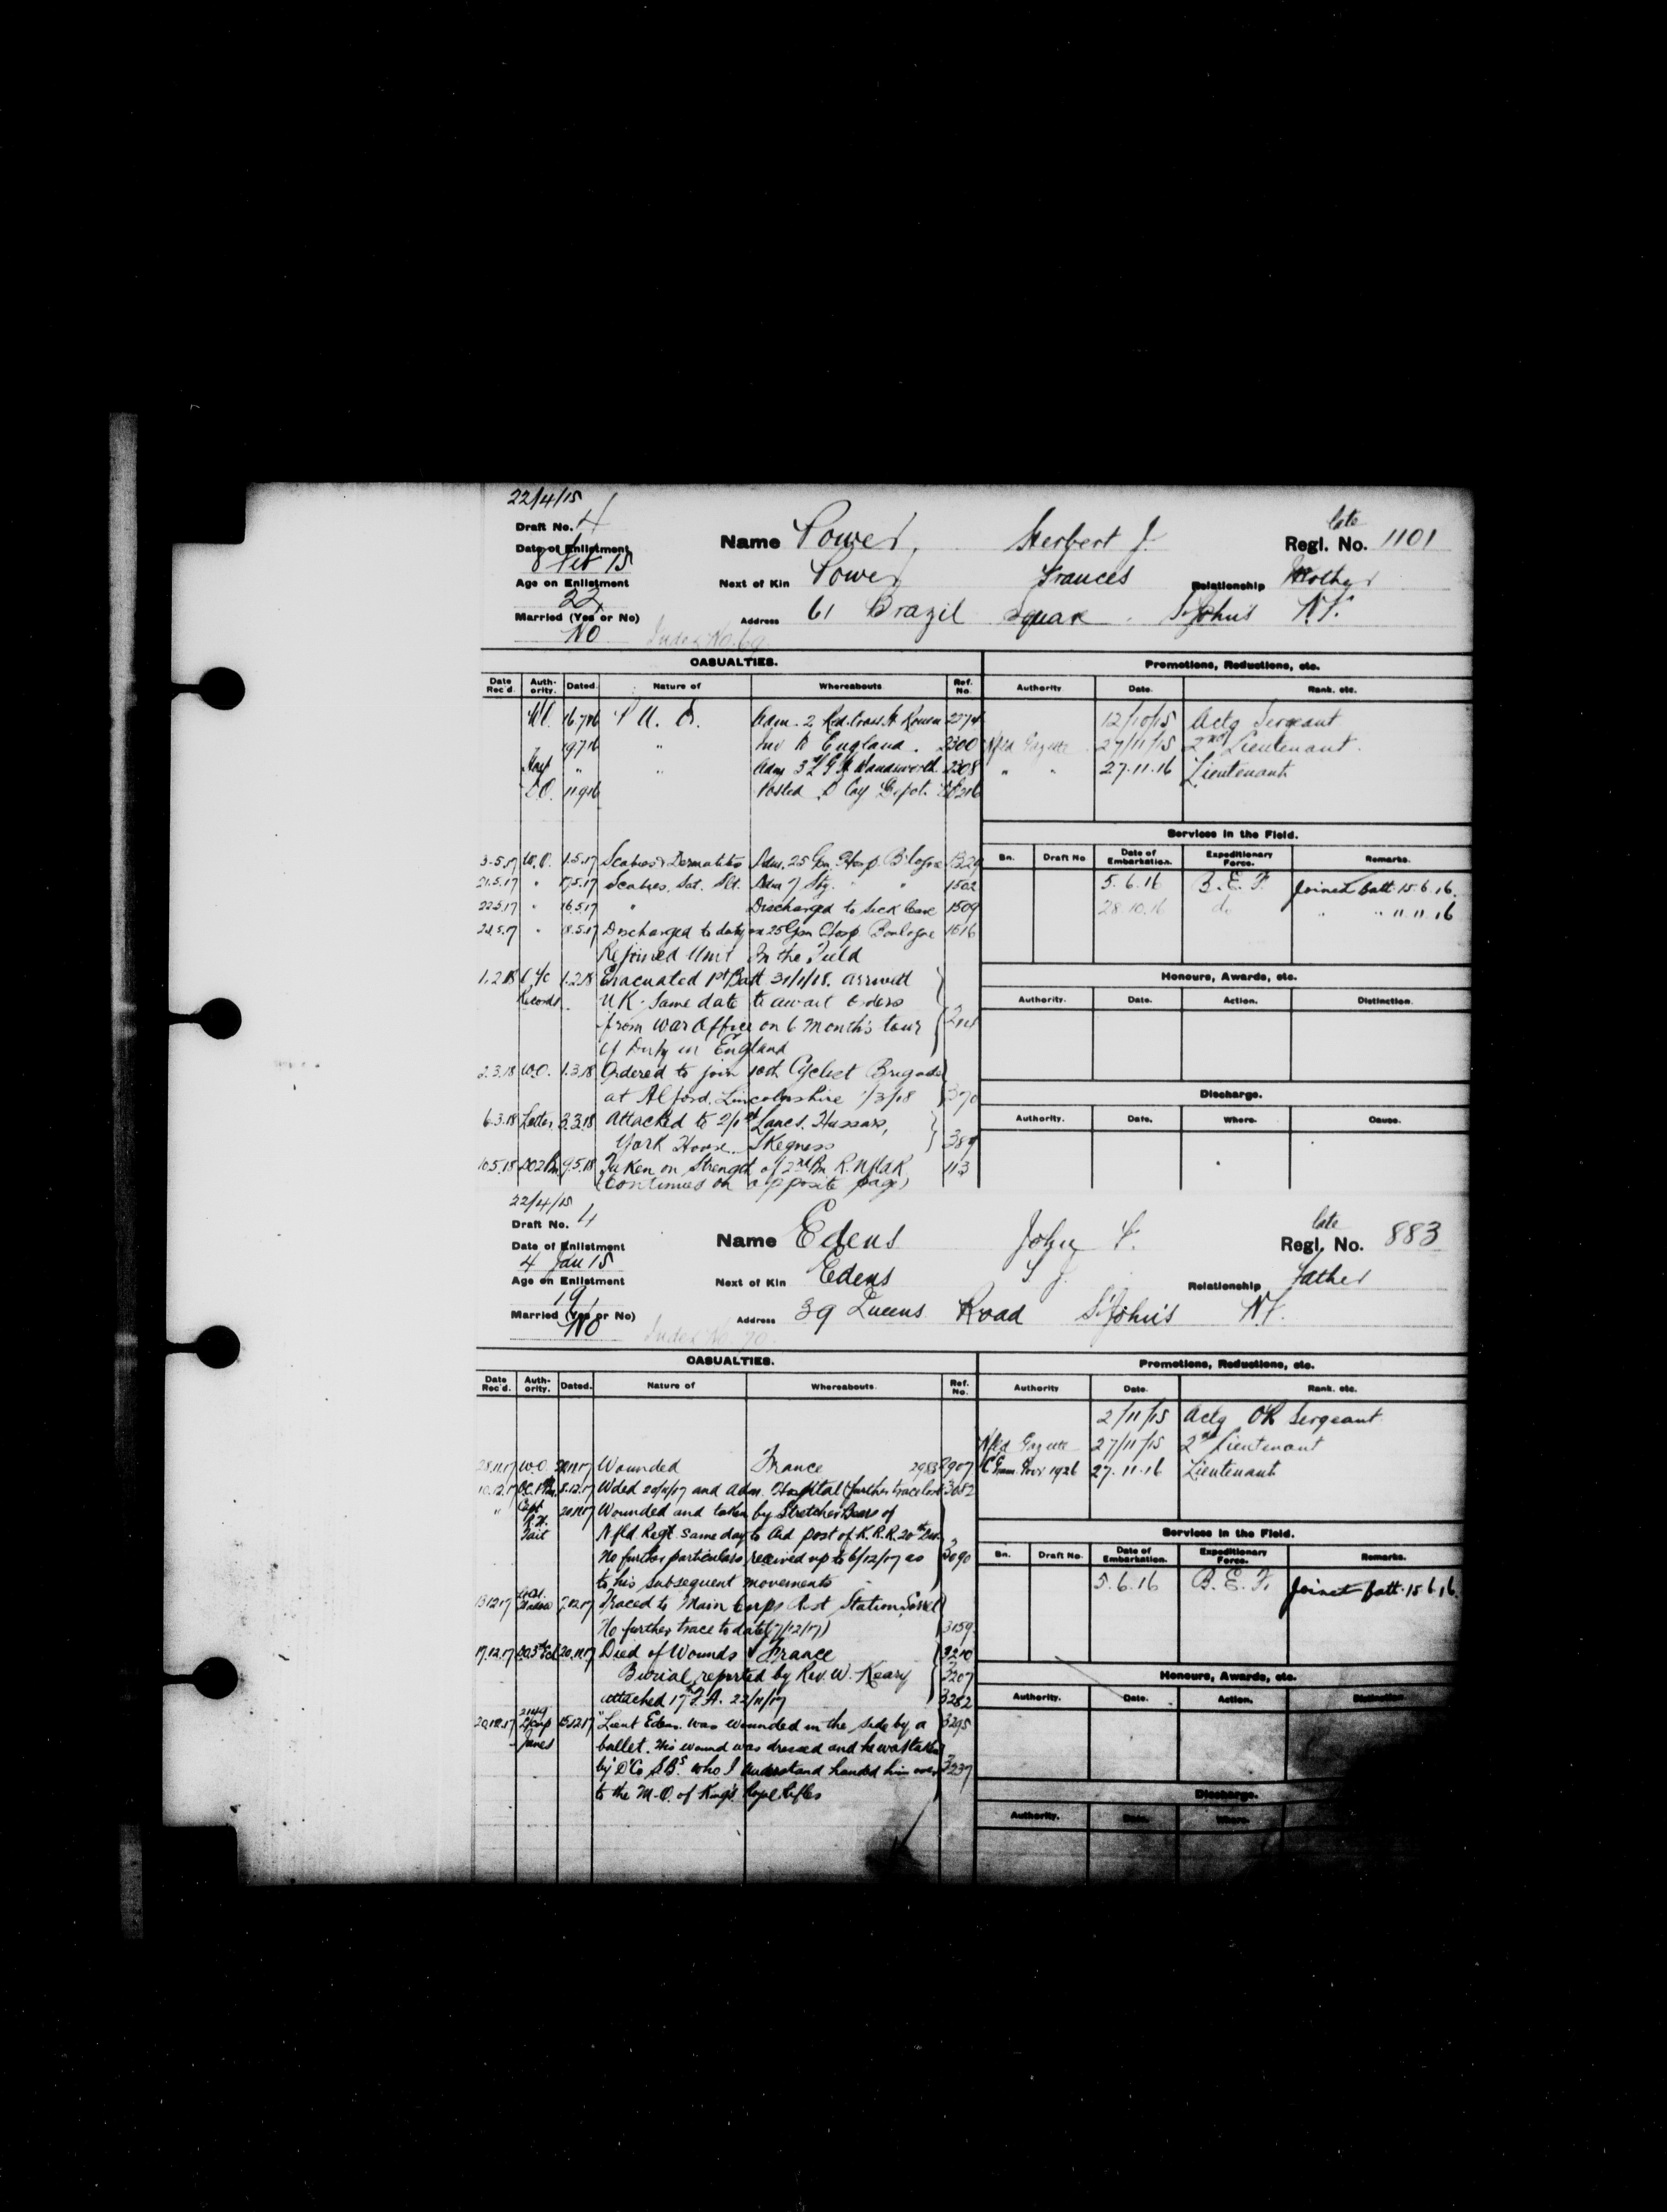 22/4/15
Draft No. 4
Name Power, Herbert J. late Regl. No. 1101
Date of Enlistment
8 Feb 15
Age on Enlistment Next of Kin Power Frances Relationship Mother
22
Married (Yes or No) Address 61 Brazil Square. St John's N.F.
No Index No. 69
CASUALTIES. Promotions, Reductions, etc.
Date Rec'd. Authority. Dated. Nature of Whereabouts Ref. No. Authority Date. Rank. etc.
16.7.16 P. U. O. Adm. 2 Red Cross H Rouen 2274 12/10/15 Actg Sergeant
19.7.16 " Inv to England. 2300 Nfld Gazette 27/11/15 2nd Lieutenant.
" " Adm 3 L G H Wandsworth 2308 " " 27.11.16 Lieutenant
11.9.16 Posted D Coy Depot.
Services in the Field.
Bn. Draft No. Date of Embarkation. Expeditionary Force. Remarks.
3.5.17 W.O. 1.5.17 Scabies & Dermatitis Adm. 25 Gen. Hosp B'logne
21.5.17 " Scabies. Adm 7 Sty. " " 1502 5.6.16 B.E.F. Joined Batt. 15.6.16.
22.5.17 " 16.5.17 " Discharged to Sick Leave 1509 28.10.16 do " " 11.11.16
22.5.17 " 18.5.17 Discharged to duty ex 25 Gen Hosp Boulogne 1616
Rejoined Unit In the Field
1.2.18 O i/c Records 1.2.18 Evacuated 1st Batt 31/1/18. arrived Honours, Awards, etc.
U.K. Same date to await orders Authority. Date. Action. Distinction.
from War Office on 6 Months tour
of Duty in England
2.3.18 W.O. 1.3.18 Ordered to join 10th Cyclist Brigade
at Alford, Lincolnshire 1/3/18 370 Discharge.
6.3.18 Letter 3.3.18 Attached to 2/1st Lancs. Hussars, Authority. Date. Where. Cause.
York House. Skegness
10.5.18 9.5.18 Taken on Strength of 2nd Bn R. Nfld R 113
(Continues on opposite page)
22/4/15
Draft No. 4
Name Edens John F. late Regl. No. 883
Date of Enlistment
4 Jan 15
Age on Enlistment Next of Kin Edens Relationship Father
19
Married (Yes or No) Address 39 Queens Road St John's N.F.
No Index No. 70
CASUALTIES. Promotions, Reductions, etc.
Date Rec'd. Authority. Dated. Nature of Whereabouts Ref. No. Authority Date. Rank. etc.
2/11/15 Actg OR Sergeant
Nfld Gazette 27/11/15 2nd Lieutenant
28.11.17 W.O. Wounded France 2983 2907 1926 27.11.16 Lieutenant
10.12.17 8.12.17 Wded 20/11/17 and adm. Hospital (further trace lost
" Capt R.H. Tait 20.11.17 Wounded and taken by Stretcher Bears of
Nfld Regt. same day to Aid post of K.R.R. 20th Div. Services in the Field.
No further particulars received up to 6/12/17 as 3090 Bn. Draft No. Date of Embarkation. Expeditionary Force. Remarks.
to his subsequent movements 5.6.16 B.E.F. Joined Batt. 15.6.16.
13.12.17 7.12.17 Traced to Main Corps Rest Station
No further trace to date (7/12/17) 3159
17.12.17 20.11.17 Died of Wounds France 3210
Burial reported by Rev. W. Keary 3207 Honours, Awards, etc.
attached 17th F.A. 22/11/17 3282 Authority. Date. Action. Distinction.
20.12.17 L/Corp Janes 15.12.17 "Lieut Edens was wounded in the side by a 3295
bullet. His wound was dressed and he was taken
by D'Co S.Bs. who I understand handed him over 3237
to the M.O. of King's Royal Rifles Discharge.
Authority. Date. Where.